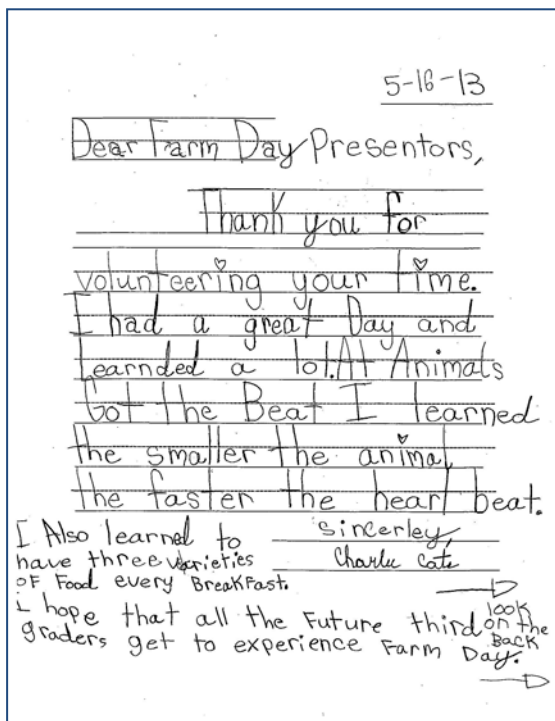 5-16-13
Dear Farm Day Presentors,
Thank you for
volunteering your time.
I had a great Day and
Learnded a lot. At Animals
Got the Beat I learned
the smaller the animal
the faster the heart beat.
Sincerley,
Charlie Cate
I Also learned to
have three varieties
of Food every BreakFast.
i hope that all the Future third
graders get to experience Farm Day.
look
on the
Back